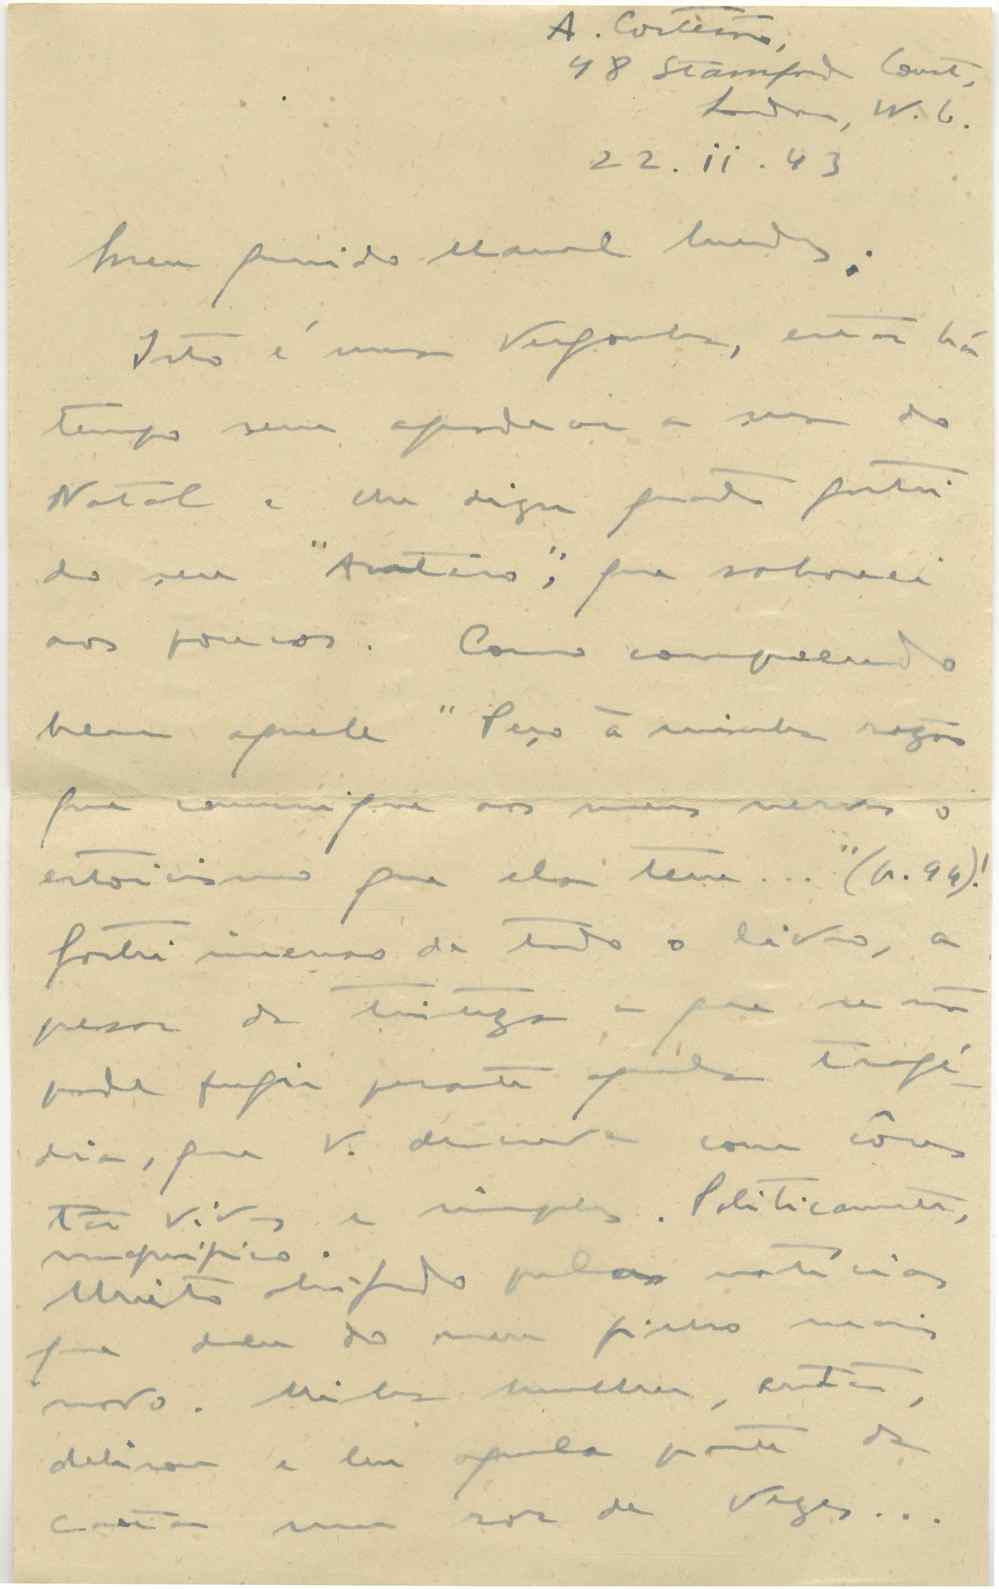 A. Cortesão,
48 Stamford Court,
London, W.6.
22.ii.43
Meu querido Manuel Mendes:
Isto é uma vergonha, estar há
tempo sem agradecer a sua do
Natal e lhe dizer quanto gostei
do seu "                ", que saboreei
aos poucos. Como compreendo
bem aquele "Peço à minha razão
que comunique aos meus nervos o
estoicismo que ela tem..." (p. 94)!
Gostei imenso de todo o livro, a
pesar da tristeza a que se não
pode fugir perante aquela tragé-
dia, que V. descreve com côres
tão vivas e simples. Politicamente,
magnífico.
Muito obrigado pelas notícias
que deu do meu      mais
novo. Minha mulher, então,
delirou e leu aquela parte da
carta um ror de vezes...